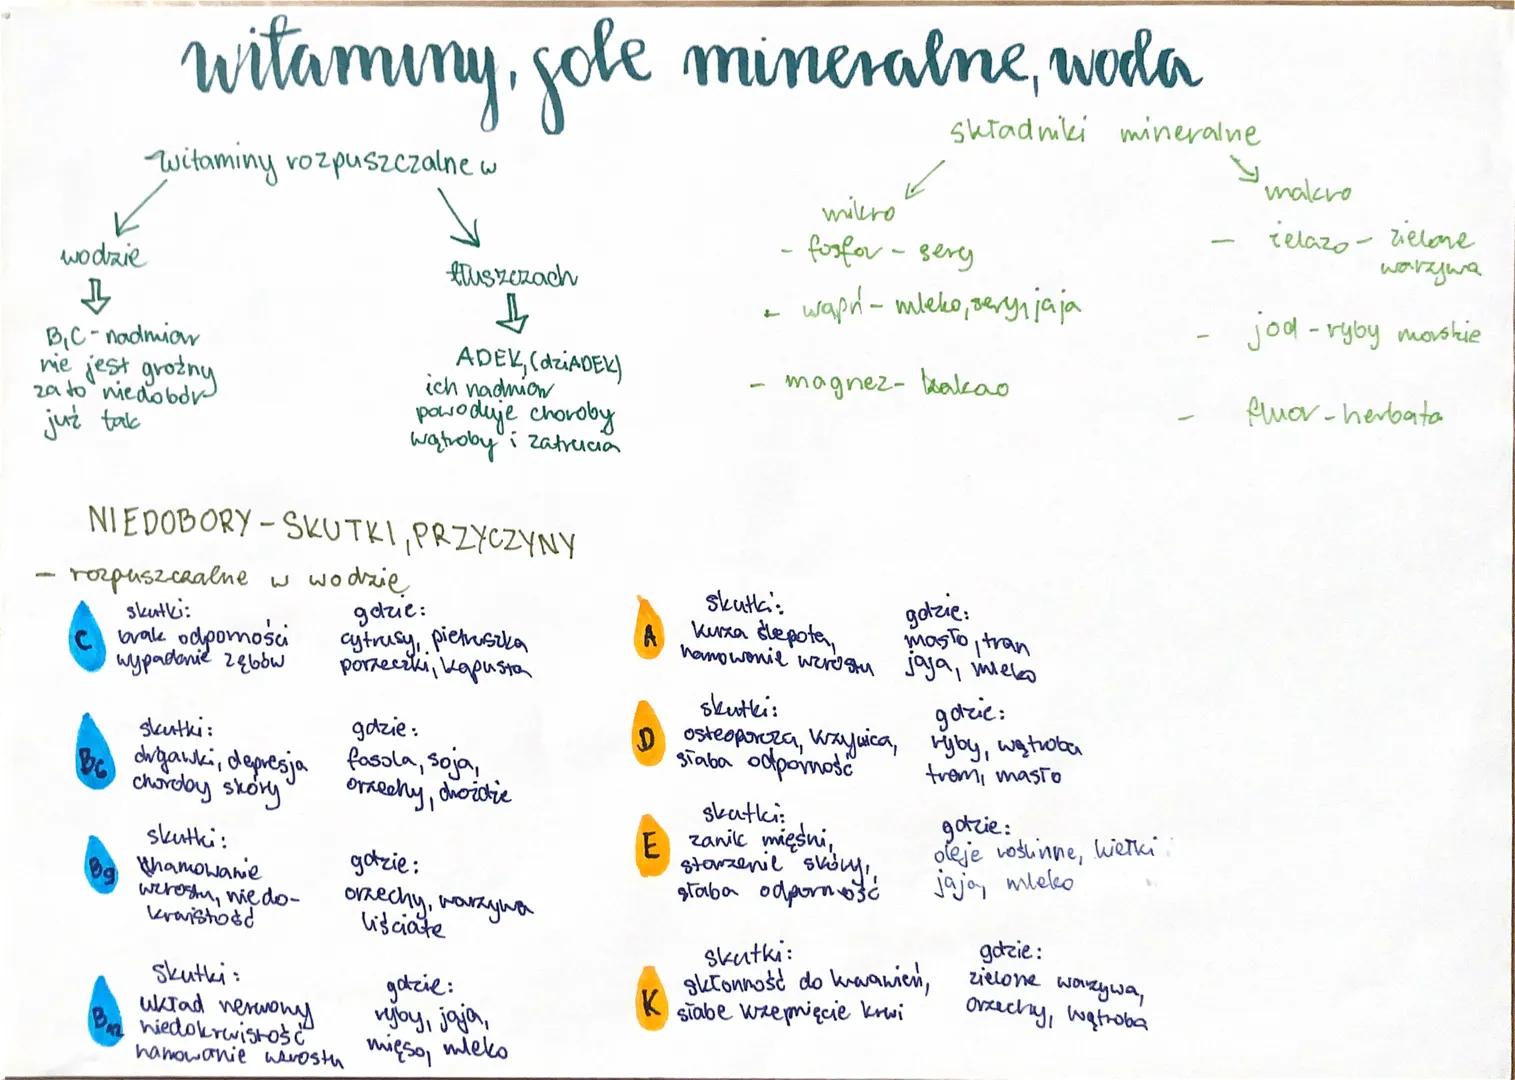 witaminy, sole mineralne, woda
witaminy rozpuszczalne w
wodzie
B,C - nadmiar
nie jest groźny
za to niedobór
już tak
tłuszczach
ADEK, (dziADEK)
ich nadmiar
powoduje choroby
wątroby i zatrucia
składniki mineralne
mikro
- fosfor - sery
- wapń - mleko, sery, jaja
- magnez - kakao
makro
- żelazo - zielone
warzywa
- jod - ryby morskie
- fluor - herbata
NIEDOBORY - SKUTKI, PRZYCZYNY
- rozpuszczalne w wodzie
C
skutki:
brak odporności
wypadanie zębów
gdzie:
cytrusy, pietruszka
porzeczki, kapusta
B6
skutki:
drgawki, depresja
choroby skóry
gdzie:
fasola, soja,
orzechy, drożdże
B9
skutki:
hamowanie
wzrostu, niedo-
krwistość
gdzie:
orzechy, warzywa
liściaste
B12
skutki:
układ nerwowy
niedokrwistość
hamowanie wzrostu
gdzie:
ryby, jaja,
mięso, mleko
A
skutki:
kurza ślepota,
hamowanie wzrostu
gdzie:
masło, tran
jaja, mleko
D
skutki:
osteoporoza, krzywica,
słaba odporność
gdzie:
ryby, wątroba
tran, masło
E
skutki:
zanik mięśni,
starzenie skóry,
słaba odporność
gdzie:
oleje roślinne, kiełki
jaja, mleko
K
skutki:
skłonność do krwawień,
słabe krzepnięcie krwi
gdzie:
zielone warzywa,
orzechy, wątroba